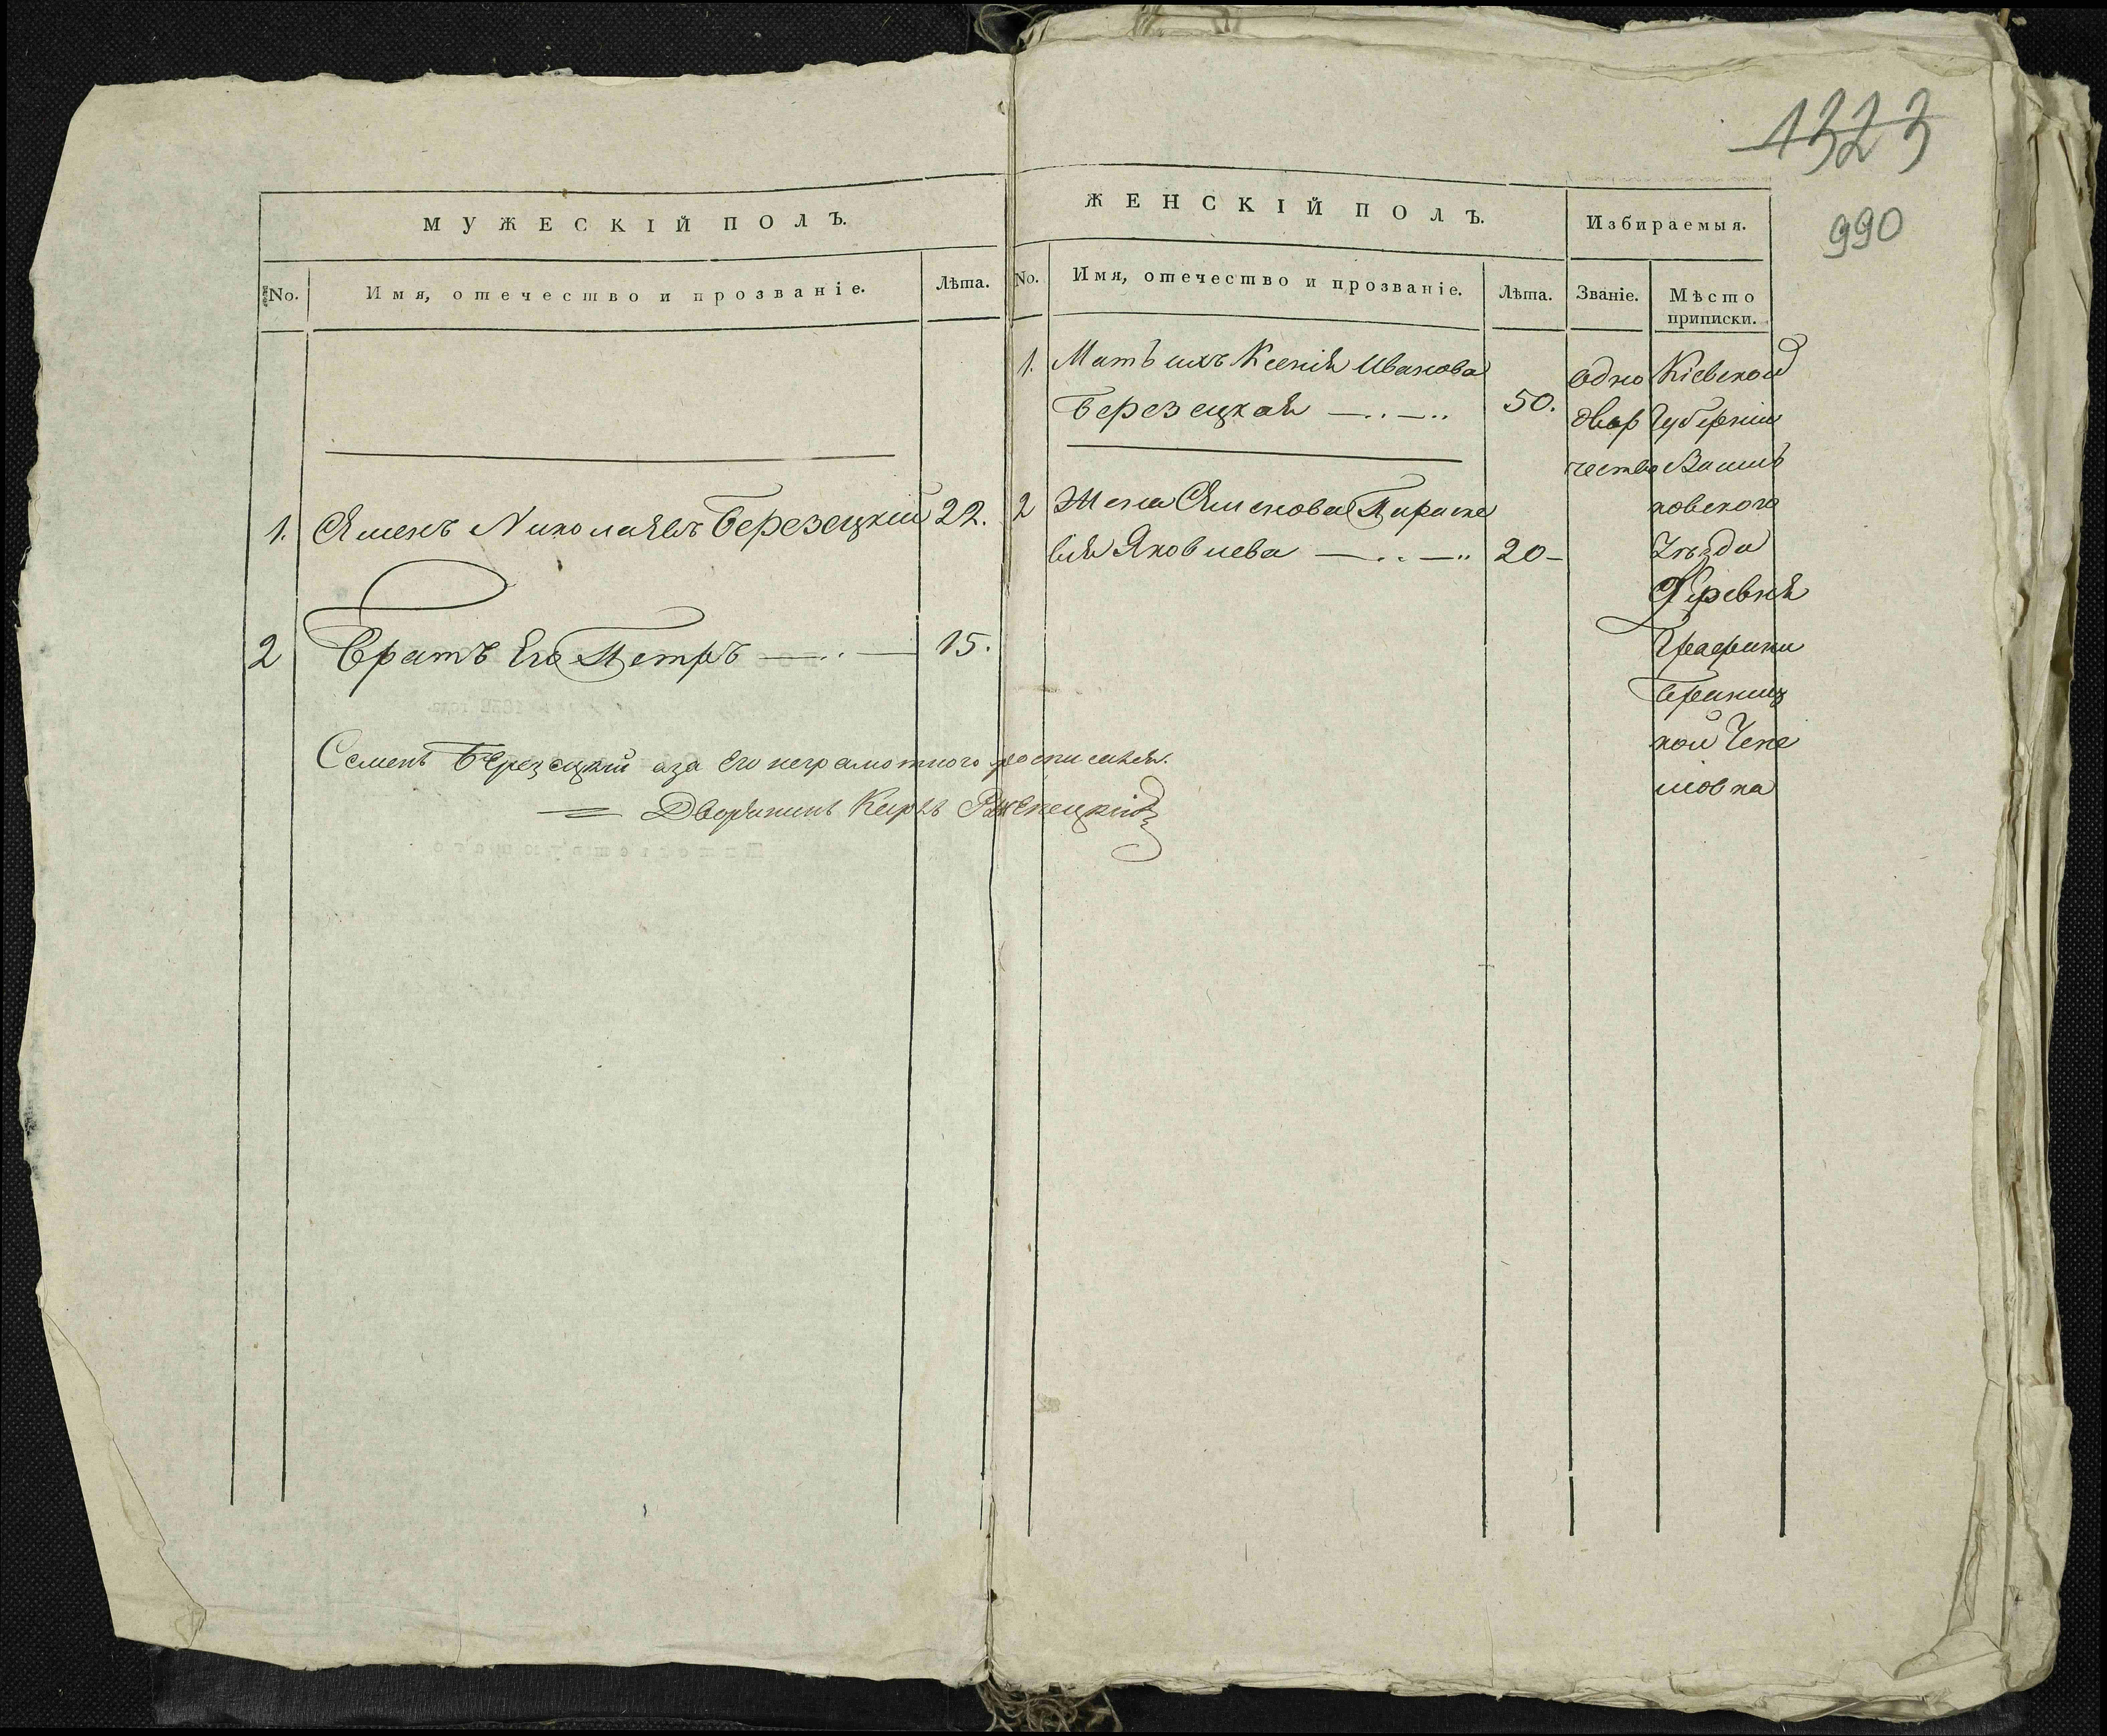 1323
990
МУЖЕСКІЙ ПОЛЪ.
No. Имя, отечество и прозваніе. Лѣта.
1. Семенъ Николаевъ Березецкий 22.
2 Братъ Его Петръ 15.
Семенъ Березецкий аза Его неграмотного росписался.
Дворянинъ Карлъ Рженецкій
ЖЕНСКІЙ ПОЛЪ.
Избираемыя.
No. Имя, отечество и прозваніе. Лѣта. Званіе. Мѣсто
приписки.
1. Мать ихъ Ксенія Иванова
Березецкая 50.
2 Жена Семенова Параске
вія Яковлева 20
Одно
двор
чество
Кіевской
Губерніи
Василь
ковского
Уѣзда
Деревня
Графини
Браниц
кой